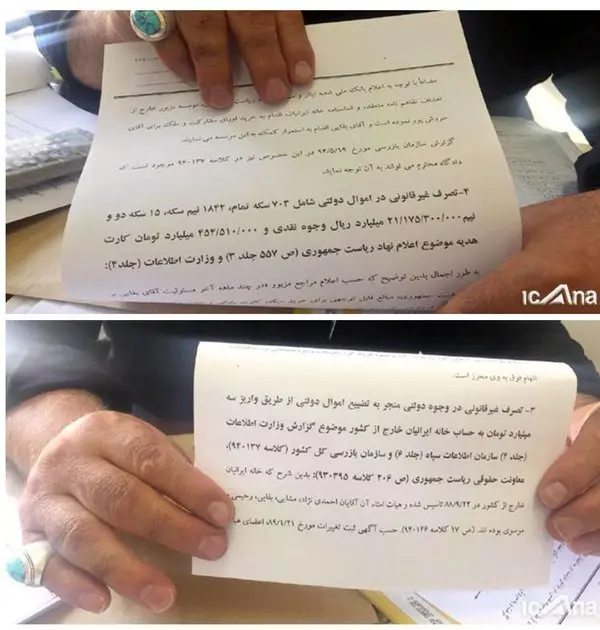 مضافاً با توجه به اعلام بانک ملی شعبه ایثار و موسسه مزبور خارج از
اهداف تفاهم نامه منعقده و اساسنامه خانه ایرانیان، اقدام به خرید اوراق مشارکت و ملک برای آقای
سروش پور نموده است و آقای بقایی اقدام به استمرار کمک به این موسسه می نمایند.
گزارش سازمان بازرسی مورخ ۹۴/۵/۱۹ در این خصوص نیز در کلاسه ۹۴۰۱۳۷ موجود است که
دادگاه محترم می تواند به آن توجه نمایند.
۴-تصرف غیرقانونی در اموال دولتی شامل ۷۰۳ سکه تمام، ۱۸۴۲ نیم سکه، ۱۵ سکه دو و
نیم ۲۱/۱۷۵/۳۰۰/۰۰۰ میلیارد ریال وجوه نقدی و ۴۵۴/۵۱۰/۰۰۰ میلیارد تومان کارت
هدیه موضوع اعلام نهاد ریاست جمهوری (ص ۵۵۷ جلد ۳) و وزارت اطلاعات (جلد۴):
به طور اجمال بدین توضیح که حسب اعلام مراجع مزبور «در چند ماهه آخر مسئولیت آقای بقایی در
icAna
اتهام فوق به وی محرز است.
۳- تصرف غیرقانونی در وجوه دولتی منجر به تضییع اموال دولتی از طریق واریز سه
میلیارد تومان به حساب خانه ایرانیان خارج از کشور موضوع گزارش وزارت اطلاعات
(جلد ۴) سازمان اطلاعات سپاه (جلد ۶) و سازمان بازرسی کل کشور (کلاسه ۹۴۰۱۳۷)،
معاونت حقوقی ریاست جمهوری (ص ۲۰۶ کلاسه ۹۳۰۳۹۵): بدین شرح که خانه ایرانیان
خارج از کشور در ۸۸/۹/۲۲ تاسیس شده و هیات امناء آن آقایان احمدی نژاد، مشایی، بقایی، رحیمی و
موسوی بوده اند. (ص ۱۷ کلاسه ۹۴۰۱۴۶). حسب آگهی ثبت تغییرات مورخ ۸۹/۶/۲۱، اعضای
icAna